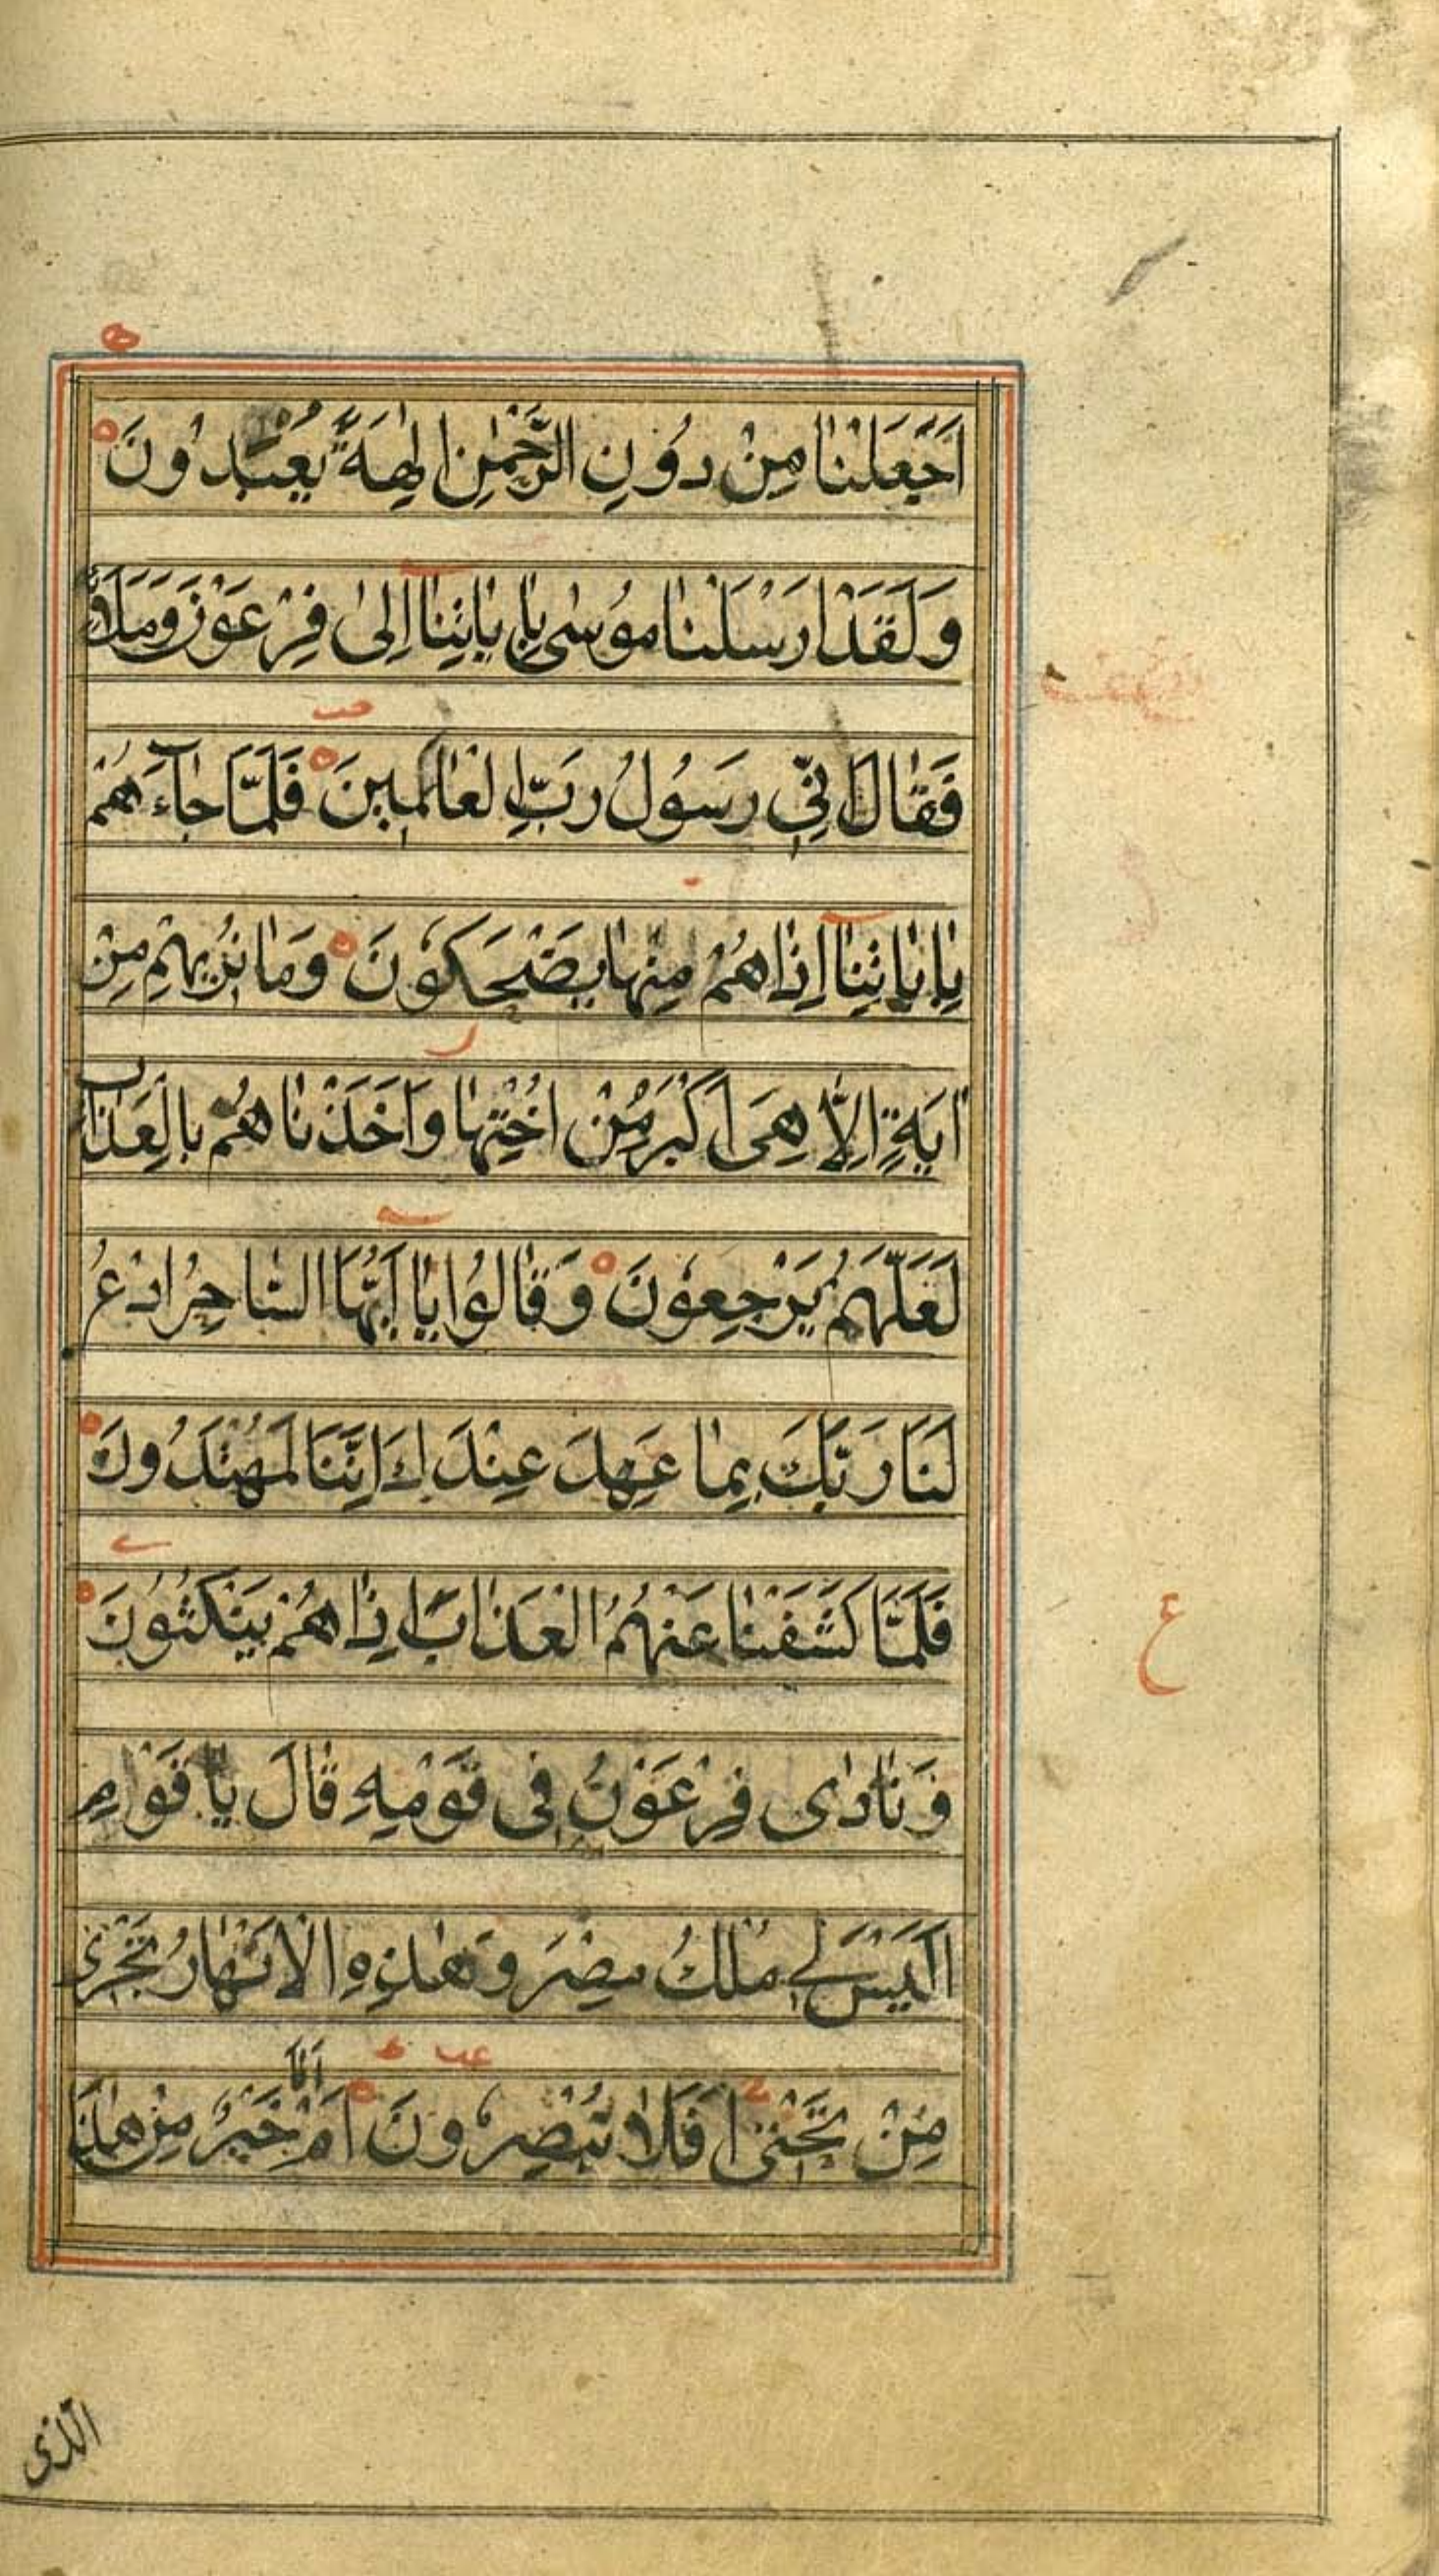 اَجَعَلْنٰا مِنْ دُوْنِ الرَّحْمٰنِ اٰلِهَةً يُعْبَدُونَ
وَلَقَدْ اَرْسَلْنٰا مُوسٰى بِاٰيٰاتِنٰا اِلٰى فِرْعَوْنَ وَمَلَائِهِ
فَقٰالَ اِنّٖى رَسُولُ رَبِّ الْعٰالَمٖينَ فَلَمَّا جٰآءَهُمْ
بِاٰيٰاتِنٰا اِذٰا هُمْ مِنْهٰا يَضْحَكُونَ وَمٰا نُرٖيهِمْ مِنْ
اٰيَةٍ اِلّٰا هِىَ اَكْبَرُ مِنْ اُخْتِهٰا وَاَخَذْنٰاهُمْ بِالْعَذٰابِ
لَعَلَّهُمْ يَرْجِعُونَ وَقٰالُوا يٰا اَيُّهَا السّٰاحِرُ ادْعُ
لَنٰا رَبَّكَ بِمٰا عَهِدَ عِنْدَكَ اِنَّنٰا لَمُهْتَدُونَ
فَلَمَّا كَشَفْنٰا عَنْهُمُ الْعَذٰابَ اِذٰا هُمْ يَنْكُثُونَ
وَنٰادٰى فِرْعَوْنُ فٖى قَوْمِهٖ قٰالَ يٰا قَوْمِ
اَلَيْسَ لٖى مُلْكُ مِصْرَ وَهٰذِهِ الْاَنْهٰارُ تَجْرٖى
مِنْ تَحْتٖى اَفَلٰا تُبْصِرُونَ اَمْ اَنَا خَيْرٌ مِنْ هٰذَا
ع
الّذى